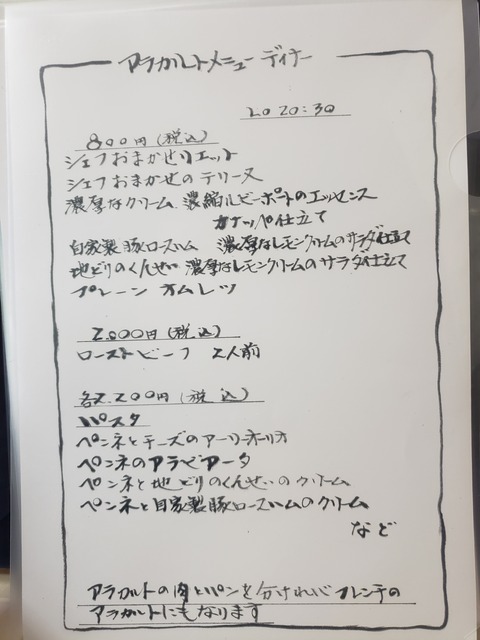 アラカルトメニュー ディナー
LO 20:30
800円(税込)
シェフおまかせリエット
シェフおまかせのテリーヌ
濃厚なクリーム 濃縮ルビーポートのエッセンス
カナッペ仕立て
自家製豚ロースハム 濃厚なレモンクリームのサラダ仕立て
地どりのくんせい 濃厚なレモンクリームのサラダ仕立て
プレーンオムレツ
2.000円(税込)
ローストビーフ 2人前
各2.200円(税込)
パスタ
ペンネとチーズのアーリオーリオ
ペンネのアラビアータ
ペンネと地どりのくんせいのクリーム
ペンネと自家製豚ロースハムのクリーム
など
アラカルトの肉とパンを分ければフレンチの
アラカルトにもなります